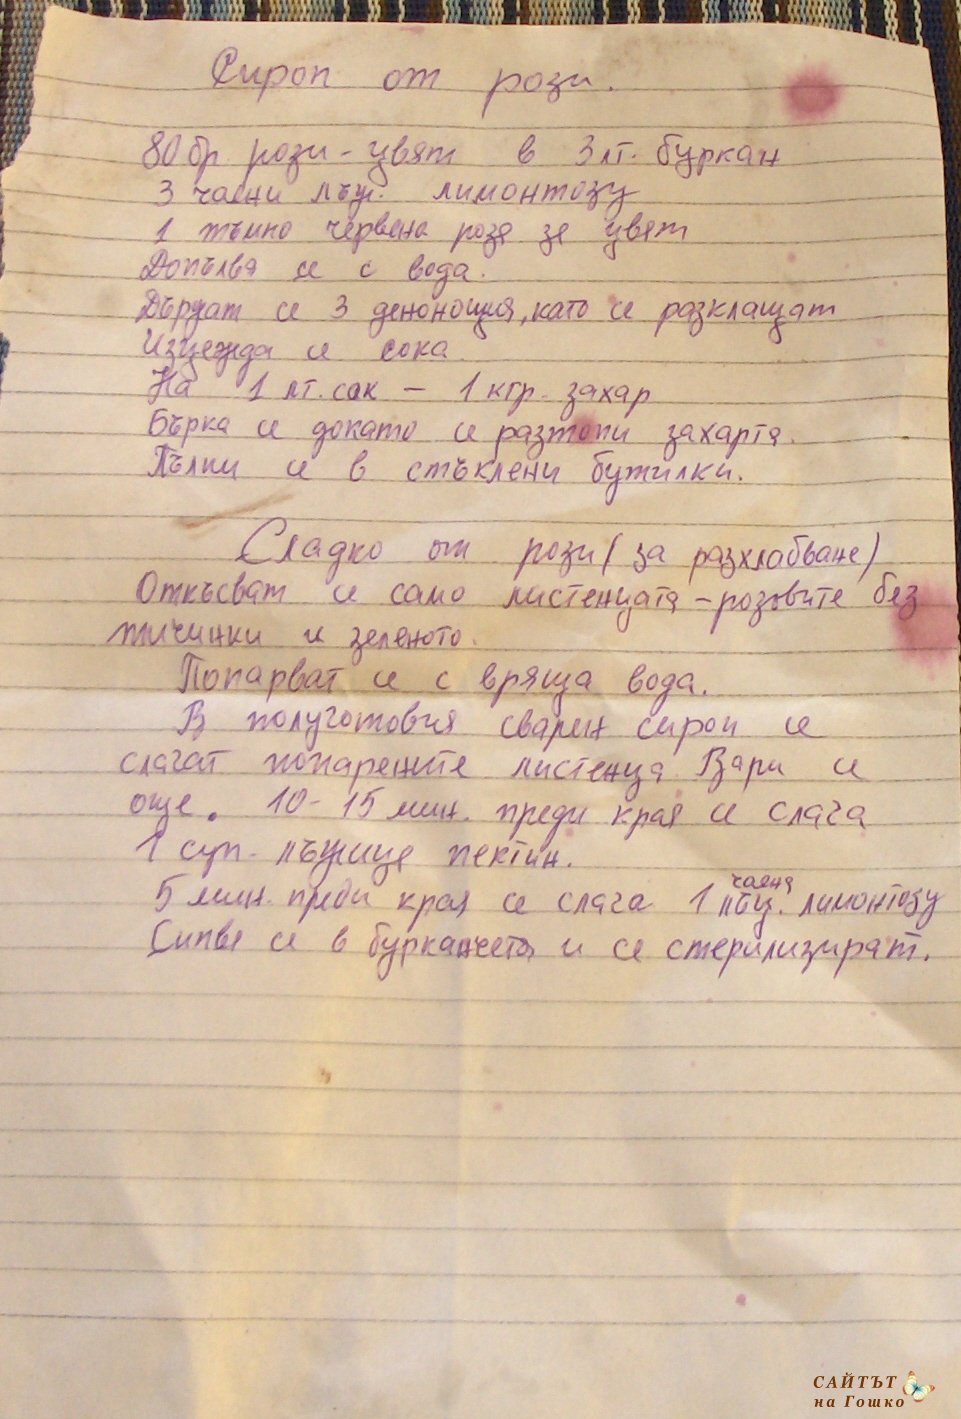 Сироп от рози.
80 бр рози - цвят в 3 лт. буркан
3 чаени лъж. лимонтозу
1 тъмно червена роза за цвят
Допълва се с вода.
Държат се 3 денонощия, като се разклащат
Изцежда се сока
На 1 лт. сок - 1 кгр. захар
Бърка се докато се разтопи захарта.
Пълни се в стъклени бутилки.
Сладко от рози (за разхлабване)
Откъсват се само листенцата - розовите без
тичинки и зеленото.
Попарват се с вряща вода.
В полуготовия сварен сироп се
слагат попарените листенца Вари се
още. 10-15 мин. преди края се слага
1 суп. лъжица пектин.
5 мин. преди края се слага 1 чаена лъж. лимонтозу
Сипва се в бурканчета и се стерилизират.
САЙТЪТ
на Гошко